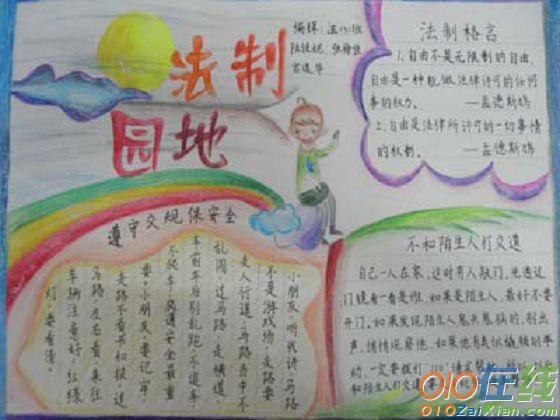 法制
园地
编辑:
法制格言
1.自由不是无限制的自由,
自由是一种能做法律许可的任何
事的权力。 ——孟德斯鸠
2.自由是法律所许可的一切事情
的权利。 ——孟德斯鸠
遵守交规保安全
小朋友听我讲:马路
不是游戏场,走路要
走人行道,马路当中不
乱闯,过马路,走横道,
车前车后别乱跑,不追车
不爬车,交通安全最重
要。小朋友,要记牢,
走路不看书和报,过
马路,左右看,来往
车辆注意好,红绿
灯,要看清。
不和陌生人打交道
自己一人在家,这时有人敲门,先透过
门镜看一看是谁,如果是陌生人,最好不要
开门。如果发现陌生人鬼头鬼脑的,别出
声,悄悄观察他。如果他有类似撬锁的举
动,一定要拨打“110”
和陌生人打交道
010在线
010ZaiXian.com